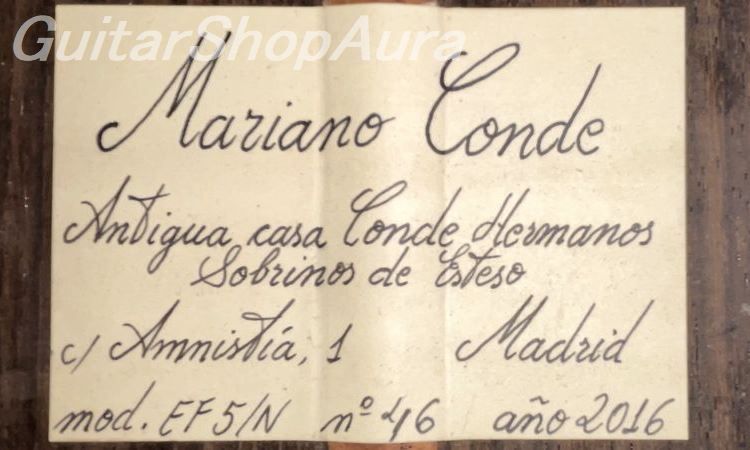 GuitarShopAura
Mariano Conde
Antigua casa Conde Hermanos
Sobrinos de Esteso
c/ Amnistía, 1 Madrid
mod. EF5/N nº 46 año 2016